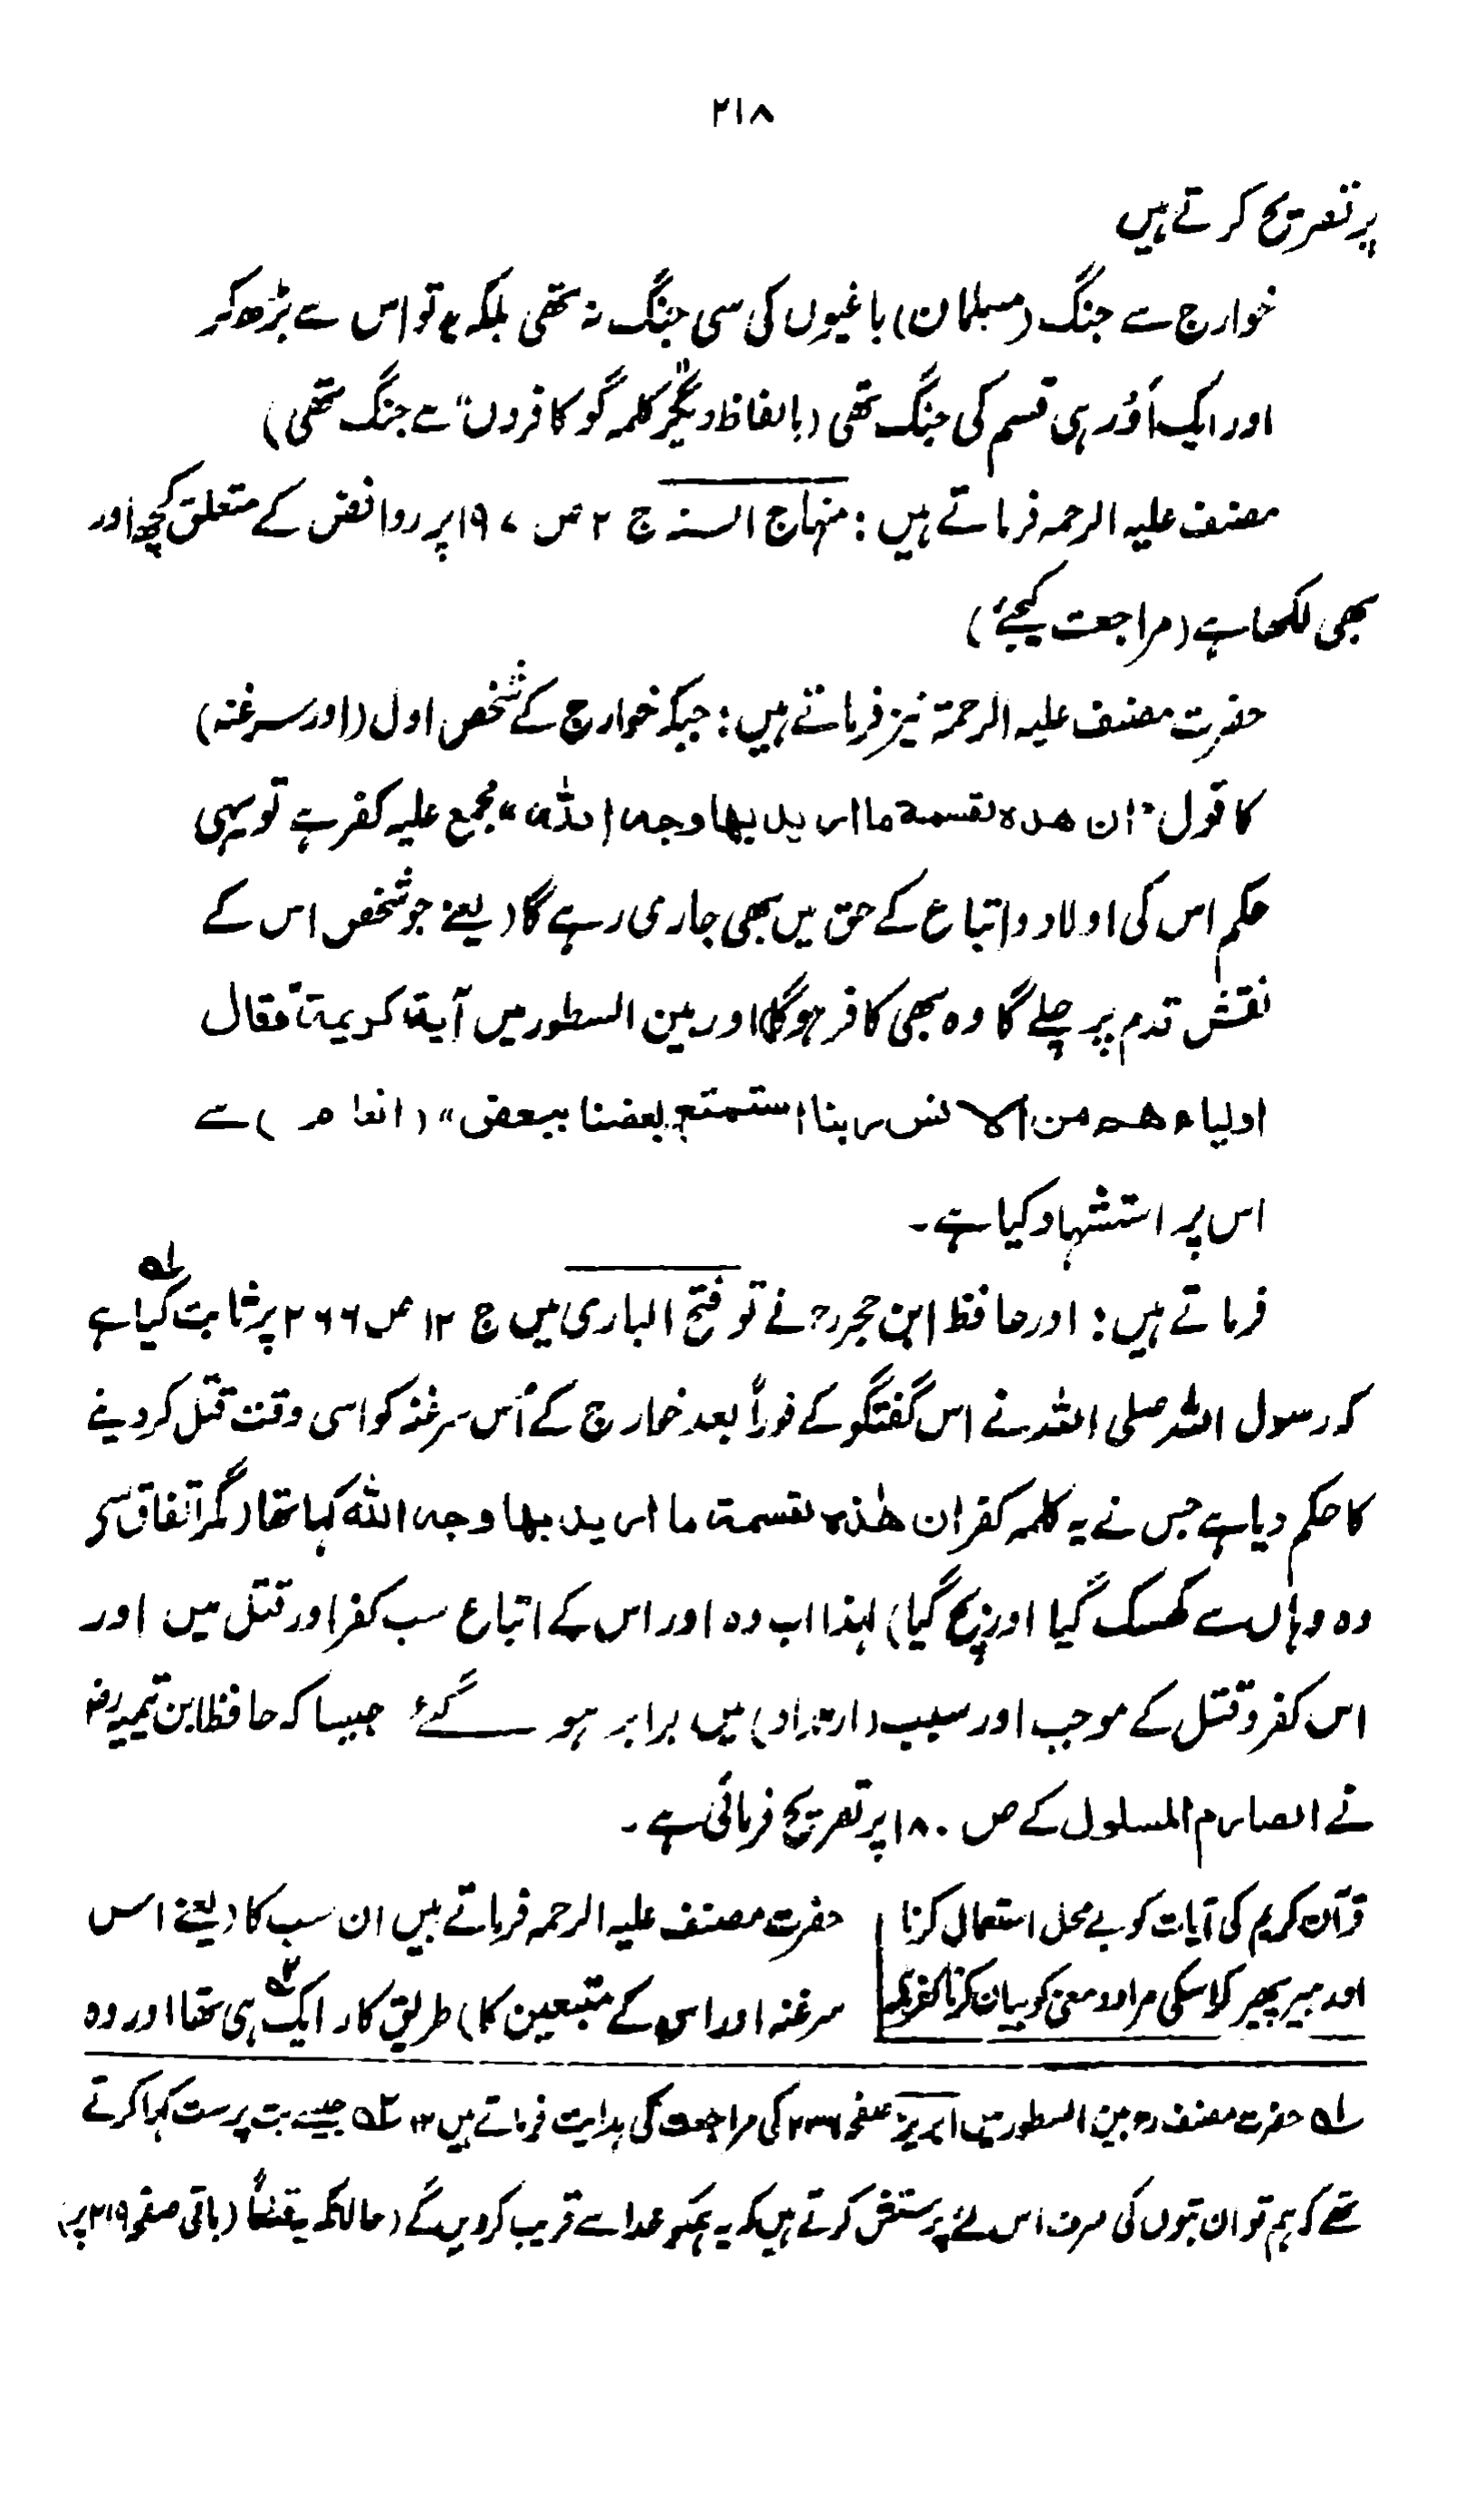 ۲۱۸
پر تصریح کرتے ہیں
خوارج سے جنگ (مسلمان) باغیوں کی سی جنگ نہ تھی بلکہ یہ تو اس سے بڑھ کر
اور ایک اَور ہی قسم کی جنگ تھی (بالفاظ دیگر "کلمہ گو کافروں" سے جنگ تھی)
مصنف علیہ الرحمہ فرماتے ہیں : منہاج السنہ ج ۲ ص ۱۹۷ پر روافض کے متعلق کچھ اور
بھی لکھا ہے (مراجعت کیجئے)
حضرت مصنف علیہ الرحمۃ نیز فرماتے ہیں : جبکہ خوارج کے شخص اول (اور سرغنہ)
کا قول "ان ھذہ لقسمۃ ما ارید بھا وجہ اللہ" مجمع علیہ کفر ہے تو یہی
حکم اس کی اولاد و اتباع کے حق میں بھی جاری رہے گا (یعنے جو شخص اس کے
نقش قدم پر چلے گا وہ بھی کافر ہوگا) اور بین السطور میں آیۃ کریمۃ "فقال
اولیاءھم من الانس ربنا استمتع بعضنا ببعض" (انعام ) سے
اس پر استشہاد کیا ہے۔
فرماتے ہیں : اور حافظ ابن حجرؒ نے تو فتح الباری میں ج ۱۲ ص ۲۶۶ پر ثابت کیا ہے ۱؎
کہ رسول اللہ صلی اللہ نے اس گفتگو کے فوراً بعد خوارج کے اُس سرغنہ کو اسی وقت قتل کر دینے
کا حکم دیا ہے جس نے یہ کلمہ کفر ان ھٰذہ لقسمۃ ما ارید بھا وجہ اللہ کہا تھا (مگر اتفاق سے
وہ وہاں سے کھسک گیا اور بچ گیا) لہذا اب وہ اور اس کے اتباع سب کفر اور قتل میں اور
اس کفر و قتل کے موجب اور سبب (ارتداد) میں برابر ہو گئے جیسا کہ حافظ ابن تیمیہؒ
نے الصارم المسلول کے ص ۱۸۰ پر تصریح فرمائی ہے۔
قرآن کریم کی آیات کو بے محل استعمال کرنا
اور ہیر پھیر کر اسکی مراد و معنی کو بیان کرنا کفر ہے
حضرت مصنف علیہ الرحمہ فرماتے ہیں ان سب کا (یعنے اس
سرغنہ اور اس کے متبعین کا) طریق کار ایک ۲؎ ہی تھا اور وہ
۱؎ حضرت مصنفؒ بین السطور میں ابریز صفحہ ۲۳۶ کی مراجعت کی ہدایت فرماتے ہیں ۱۲ ۲؎ جیسے بت پرست کہا کرتے
تھے کہ ہم تو ان بتوں کی صرف اس لئے پرستش کرتے ہیں کہ یہ ہمکو خدا سے قریب کر دیں گے (حالانکہ یقیناً (باقی صفحہ ۲۱۹ پر)